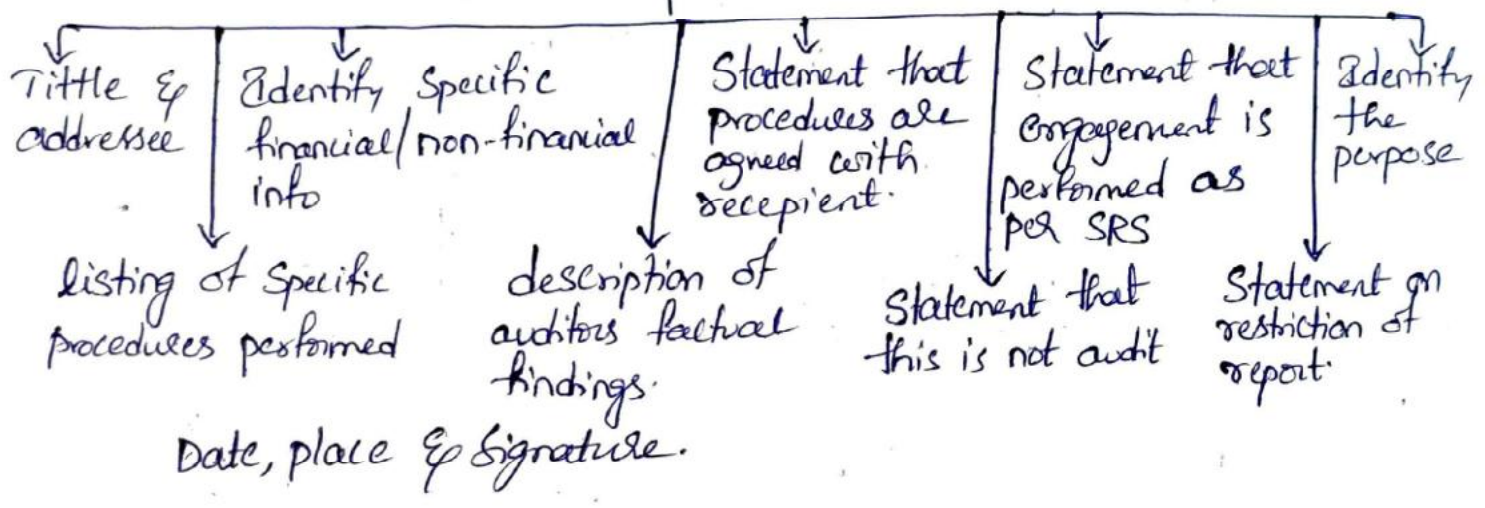 Tittle &
addressee
Identify Specific
financial/non-financial
info
Statement that
procedures are
agreed with
recepient.
Statement that
engagement is
performed as
per SRS
Identify
the
purpose
listing of Specific
procedures performed
description of
auditors factual
findings.
Statement that
this is not audit
Statement on
restriction of
report.
Date, place & Signature.